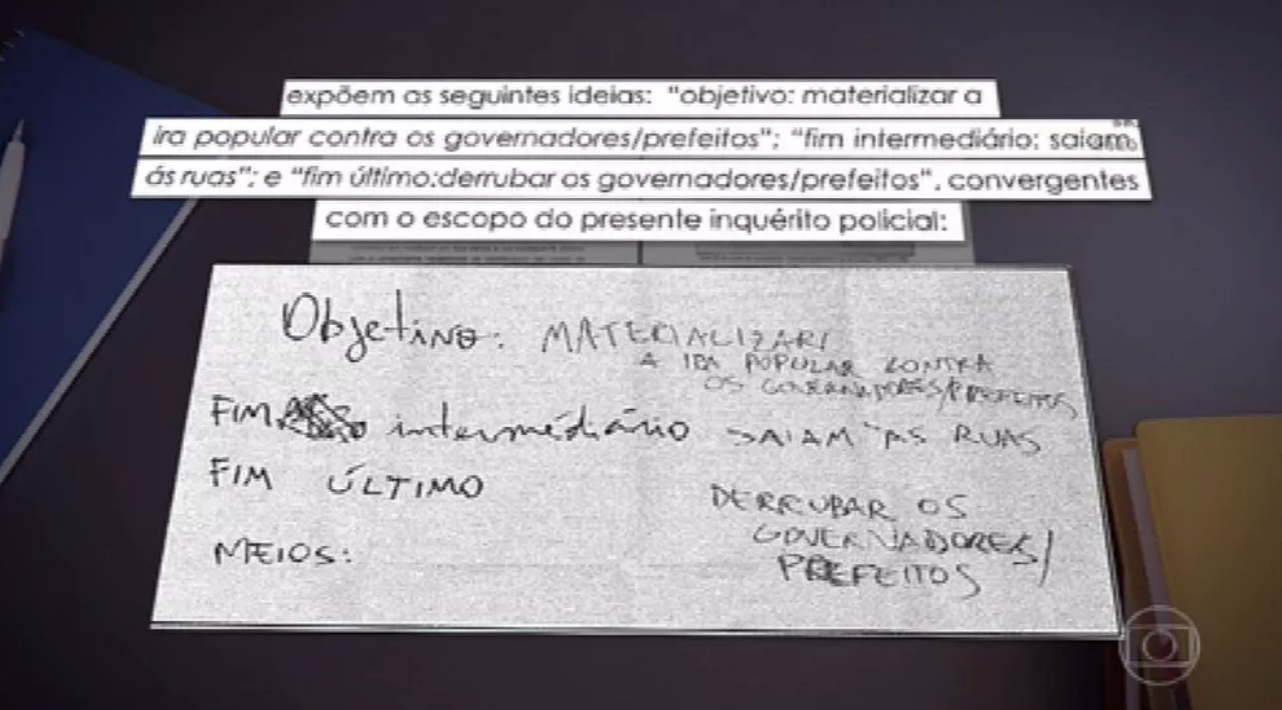 expõem as seguintes ideias: "objetivo: materializar a
ira popular contra os governadores/prefeitos"; "fim intermediário: saiam
ás ruas"; e "fim último:derrubar os governadores/prefeitos", convergentes
com o escopo do presente inquérito policial:
Objetivo: MATERIALIZAR/
A IRA POPULAR CONTRA
OS GOVERNADORES/PREFEITOS
FIM intermédiário SAIAM AS RUAS
FIM ÚLTIMO
DERRUBAR OS
GOVERNADORES/
MEIOS:
PREFEITOS